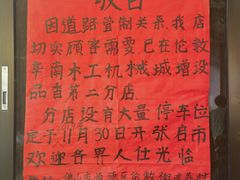 敬告
因道路管制关系我店
切实顾客需要已在伦教
木工机械城增设
品 第二分店
分店设有大量停车位
定于11月30日开张自市
欢迎各界人仕光临